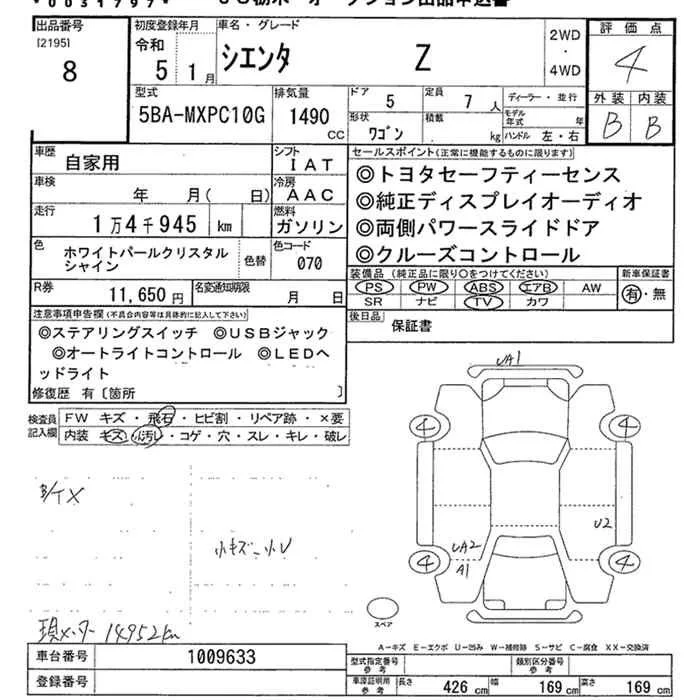 *0031797*
出品番号 初度登録年月 車名・グレード 評価点
[2195] 令和 2WD
8 5 1月 シエンタ Z ・ 4
4WD
型式 排気量 ドア 5 定員 7 人 ディーラー・並行 外装 内装
5BA-MXPC10G 1490 CC 形状 ワゴン 積載 kg モデル年式 年 B B
ハンドル 左・右
車歴 自家用 シフト IAT セールスポイント(正常に機能するものに限ります)
車検 年 月( 日) 冷房 AAC ◎トヨタセーフティーセンス
走行 1万4千945 km 燃料 ガソリン ◎純正ディスプレイオーディオ
◎両側パワースライドドア
色 ホワイトパールクリスタルシャイン 色替 色コード 070 ◎クルーズコントロール
装備品(純正品に限り○をつけてください) 新車保証書
R券 11,650円 名変通知期限 月 日 PS PW ABS エアB AW 有・無
SR ナビ TV カワ
注意事項申告欄(不具合内容等は具体的に記入して下さい) 後日品 保証書
◎ステアリングスイッチ ◎USBジャック
◎オートライトコントロール ◎LEDヘ
ッドライト
修復歴 有〔箇所 〕
検査員記入欄 FW キズ・飛石・ヒビ割・リペア跡・×要
内装 キズ・汚レ・コゲ・穴・スレ・キレ・破レ
UA1
4 4
B/イX
U2
小キズ 小U
UA2
A1
4 4
スペア
現メーター 14952km
A-キズ E-エクボ U-凹み W-補修跡 S-サビ C-腐食 XX-交換済
車台番号 1009633 型式指定番号 参考 類別区分番号 参考
登録番号 車庫証明用 参考 長さ 426 cm 幅 169 cm 高さ 169 cm